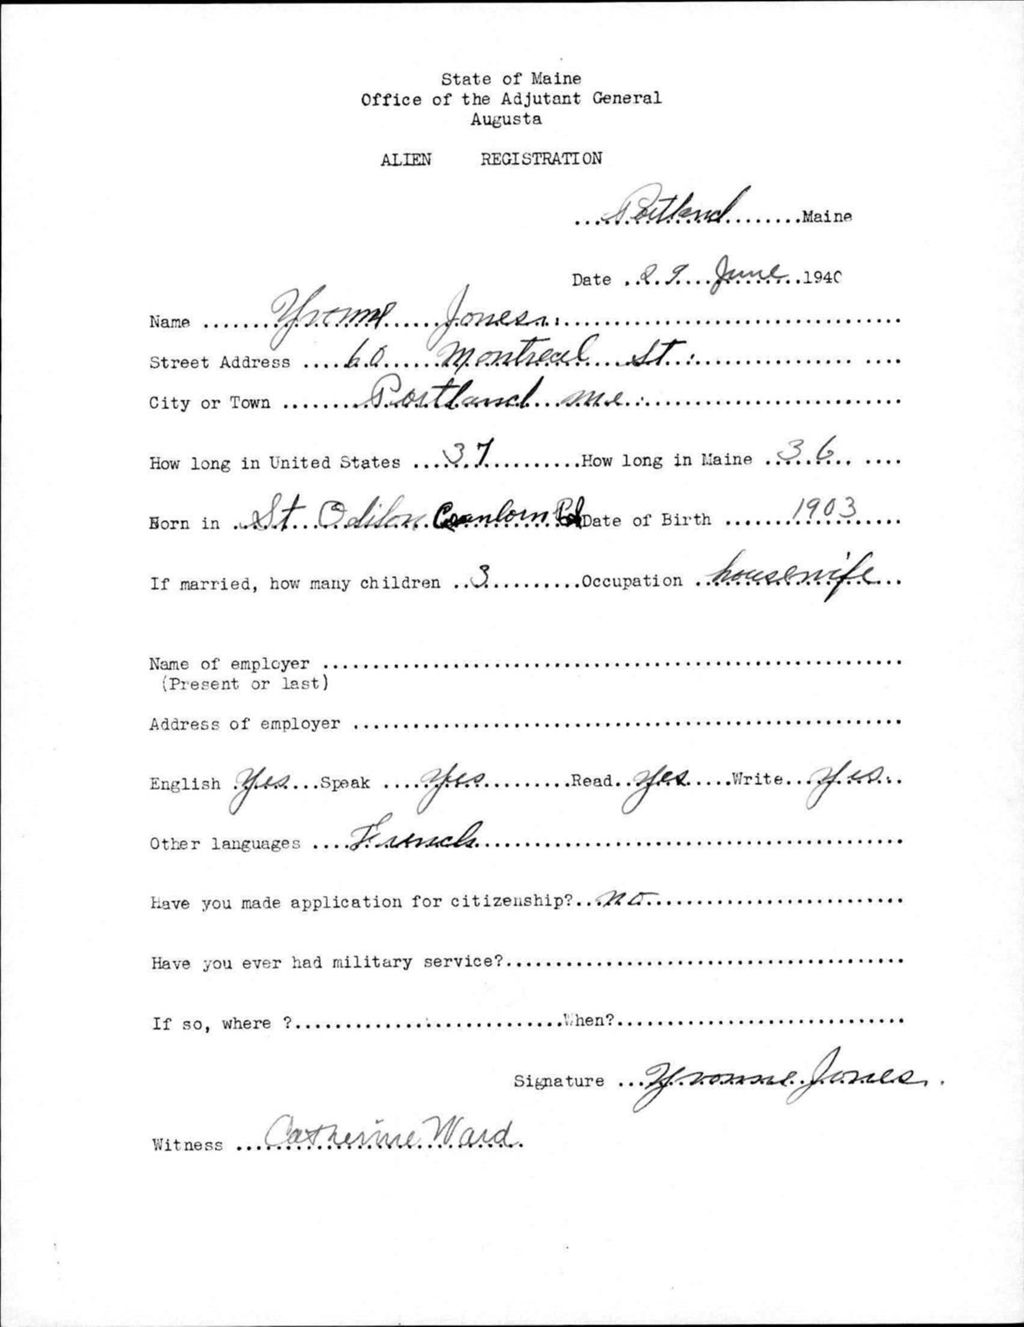 State of Maine
Office of the Adjutant General
Augusta
ALIEN REGISTRATION
Portland Maine
Date 29 June 1940
Name Yvonne Jones
Street Address 60 Montreal St.
City or Town Portland Me.
How long in United States 37 How long in Maine 36
Born in St Odilon Date of Birth 1903
If married, how many children 3 Occupation housewife
Name of employer
(Present or last)
Address of employer
English Yes Speak Yes Read Yes Write Yes
Other languages French
Have you made application for citizenship? no
Have you ever had military service?
If so, where ? When?
Signature Yvonne Jones.
Witness Catherine Ward.